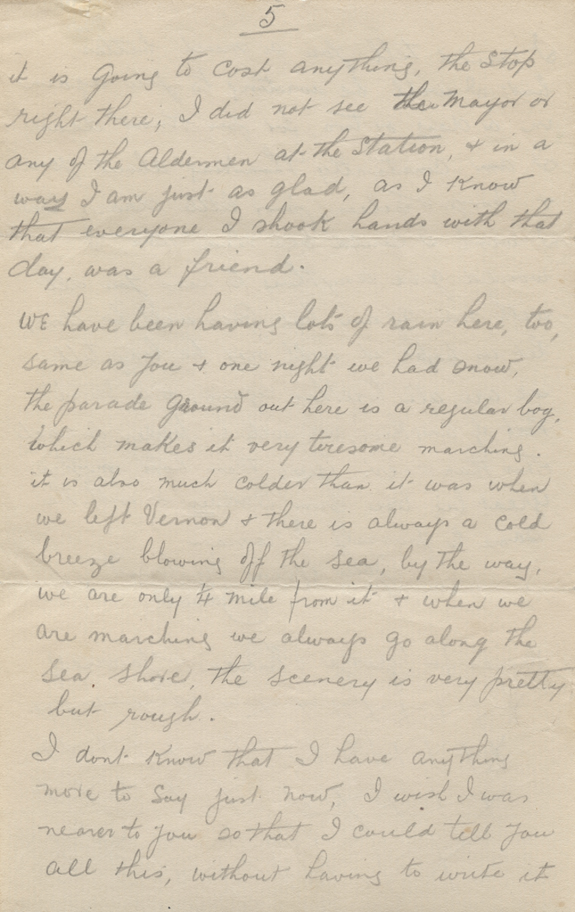 5
it is going to cost anything, the stop
right there, I did not see the Mayor or
any of the Aldermen at the Station, & in a
way I am just as glad, as I know
that everyone I shook hands with that
day, was a friend.
WE have been having lots of rain here, too,
same as you & one night we had snow,
the parade ground out here is a regular bog,
which makes it very tiresome marching.
it is also much colder than it was when
we left Vernon & there is always a cold
breeze blowing off the sea, by the way,
we are only ¼ mile from it & when we
are marching we always go along the
sea shore, the scenery is very pretty
but rough.
I dont know that I have anything
more to say just now, I wish I was
nearer to you so that I could tell you
all this, without having to write it